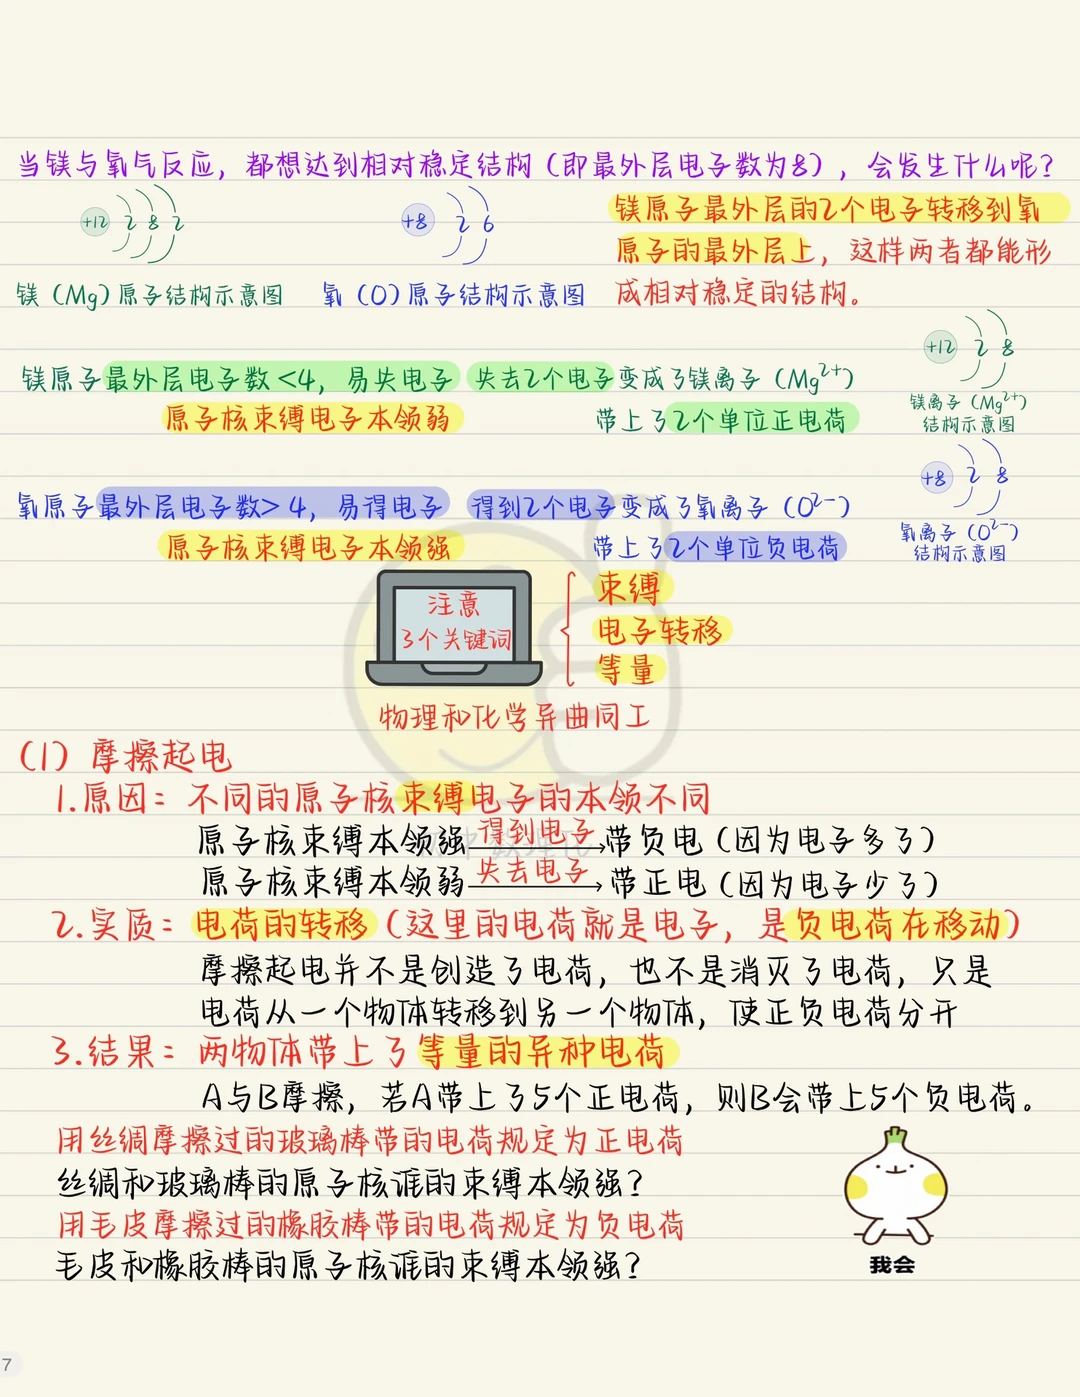 当镁与氧气反应，都想达到相对稳定结构（即最外层电子数为8），会发生什么呢？
+12 2 8 2
+8 2 6
镁原子最外层的2个电子转移到氧
原子的最外层上，这样两者都能形
成相对稳定的结构。
镁（Mg）原子结构示意图
氧（O）原子结构示意图
+12 2 8
镁原子最外层电子数<4，易失电子 失去2个电子变成了镁离子（Mg²⁺）
原子核束缚电子本领弱 带上了2个单位正电荷
镁离子（Mg²⁺）
结构示意图
+8 2 8
氧原子最外层电子数>4，易得电子 得到2个电子变成了氧离子（O²⁻）
原子核束缚电子本领强 带上了2个单位负电荷
氧离子（O²⁻）
结构示意图
注意
3个关键词
束缚
电子转移
等量
物理和化学异曲同工
（1）摩擦起电
1.原因：不同的原子核束缚电子的本领不同
原子核束缚本领强 得到电子 带负电（因为电子多了）
原子核束缚本领弱 失去电子 带正电（因为电子少了）
2.实质：电荷的转移（这里的电荷就是电子，是负电荷在移动）
摩擦起电并不是创造了电荷，也不是消灭了电荷，只是
电荷从一个物体转移到另一个物体，使正负电荷分开
3.结果：两物体带上了等量的异种电荷
A与B摩擦，若A带上了5个正电荷，则B会带上5个负电荷。
用丝绸摩擦过的玻璃棒带的电荷规定为正电荷
丝绸和玻璃棒的原子核谁的束缚本领强？
用毛皮摩擦过的橡胶棒带的电荷规定为负电荷
毛皮和橡胶棒的原子核谁的束缚本领强？
我会
7